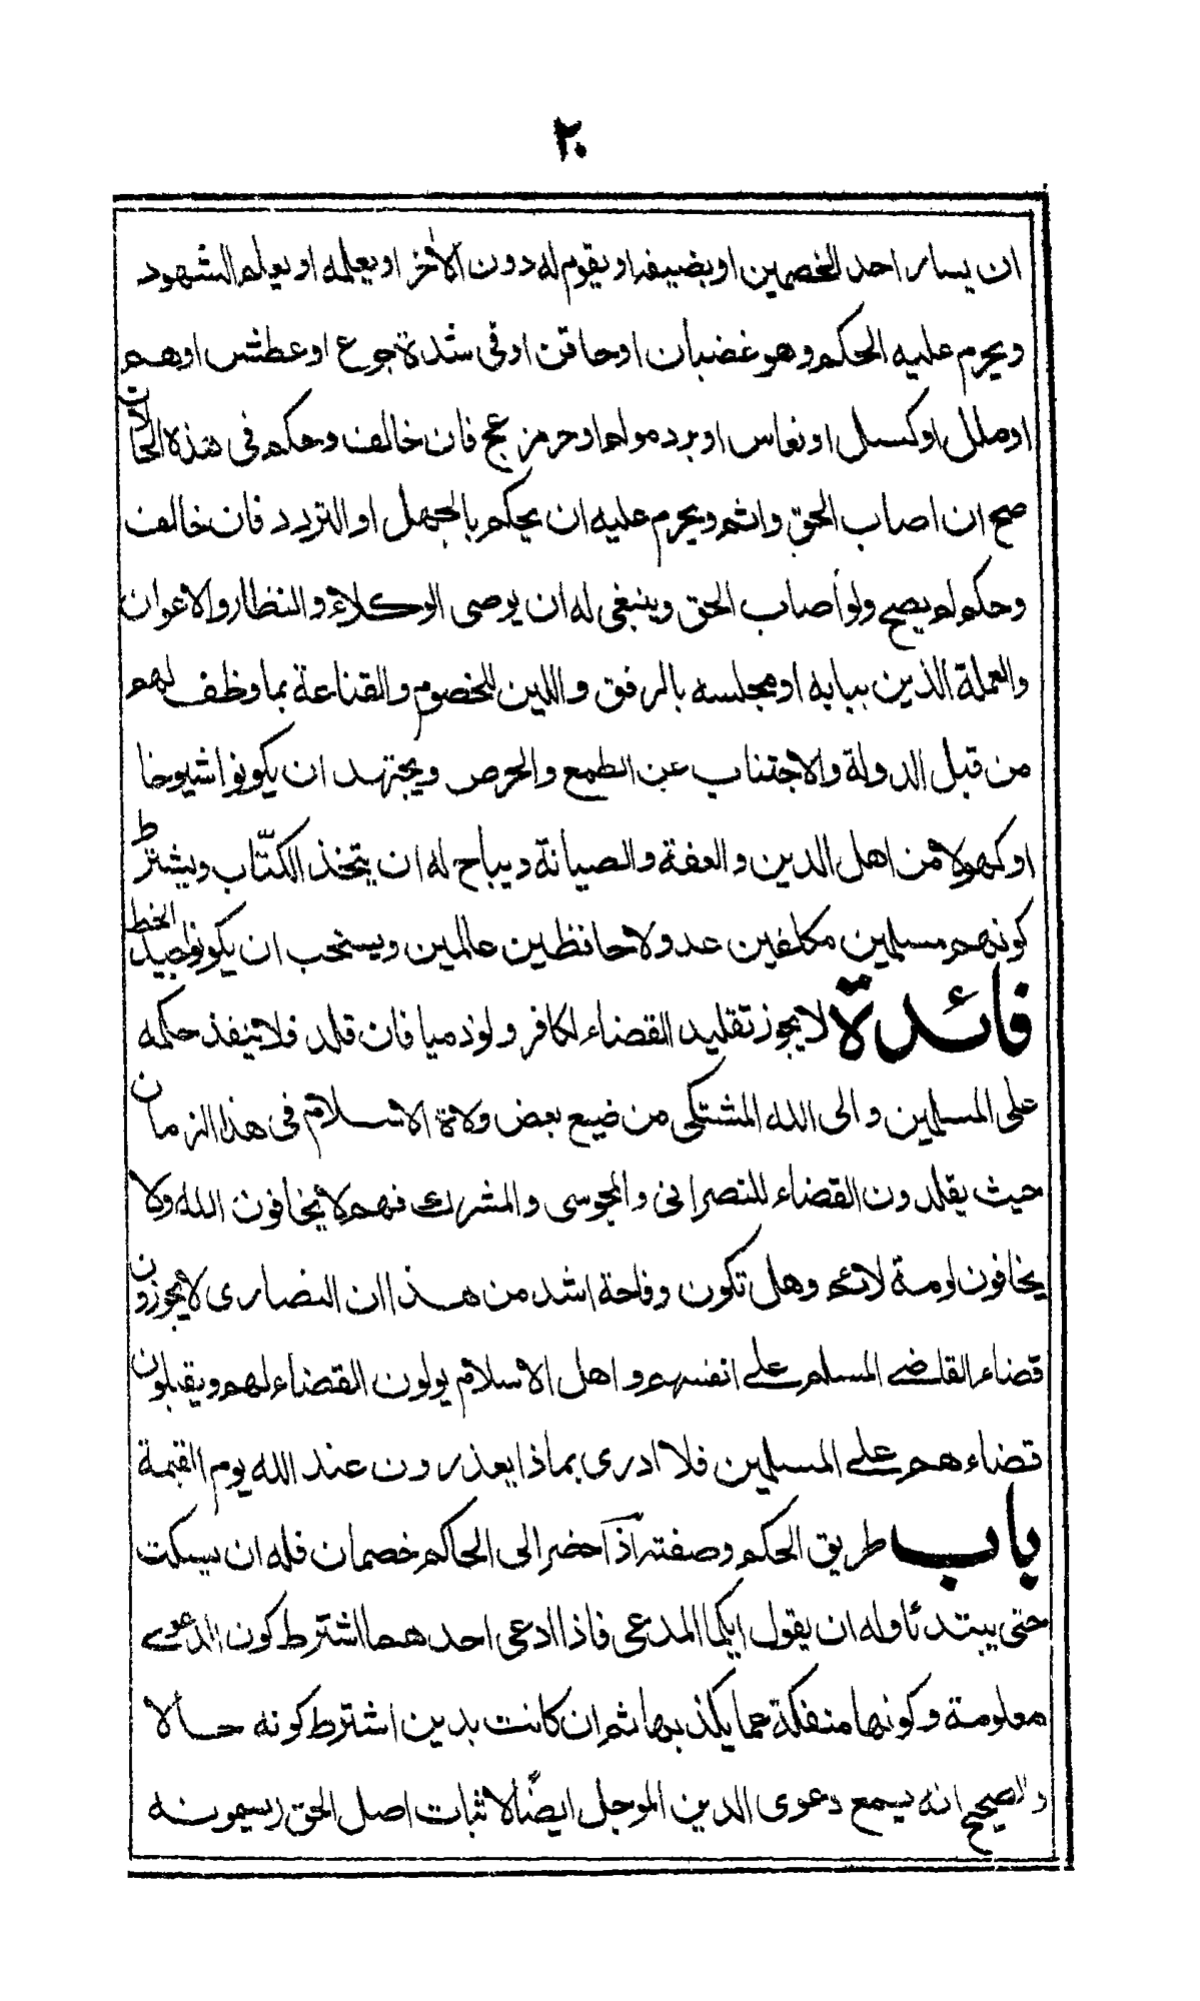 ٢٠
ان يسار احد الخصمين او يضيفه او يقوم له دون الآخر او يعلمه او يعلم الشهود
ويحرم عليه الحكم وهو غضبان او حاقن او في شدة جوع او عطش او هم
او ملل او كسل او نعاس او برد مولم او حر مزعج فان خالف وحكم في هذه الحالات
صح ان اصاب الحق واثم ويحرم عليه ان يحكم بالجهل او التردد فان خالف
وحكم لم يصح ولو أصاب الحق وينبغي له ان يوصى الوكلاء والنظار والاعوان
والعملة الذين ببابه او مجلسه بالرفق واللين للخصوم والقناعة بما وظف لهم
من قبل الدولة والاجتناب عن الطمع والحرص ويجتهد ان يكونوا شيوخا
او كهولا من اهل الدين والعفة والصيانة ويباح له ان يتخذ الكتّاب ويشترط
كونهم مسلمين مكلفين عدولا حافظين عالمين ويستحب ان يكونوا جيد الخط
فائدة لا يجوز تقليد القضاء لكافر ولو ذميا فان قلد فلا ينفذ حكمه
على المسلمين والى الله المشتكى من ضيع بعض ولاة الاسلام في هذا الزمان
حيث يقلدون القضاء للنصرانى والمجوسى والمشرك فهم لا يخافون الله ولا
يخافون لومة لائم وهل تكون وقاحة اشد من هذا ان النصارى لا يجوزون
قضاء القاضے المسلم علے انفسهم واهل الاسلام يولون القضاء لهم ويقبلون
قضاءهم علے المسلمين فلا ادرى بماذا يعذرون عند الله يوم القيمة
باب طريق الحكم وصفته اذا حضر الى الحاكم خصمان فله ان يسكت
حتى يبتدئا وله ان يقول ايكما المدعى فاذا ادعى احدهما اشترط كون الدعوے
معلومة وكونها منفكة عما يكذبها ثم ان كانت بدين اشترط كونه حالا
والصحيح انه يسمع دعوى الدين الموجل ايضًا لاثبات اصل الحق ويسمونه